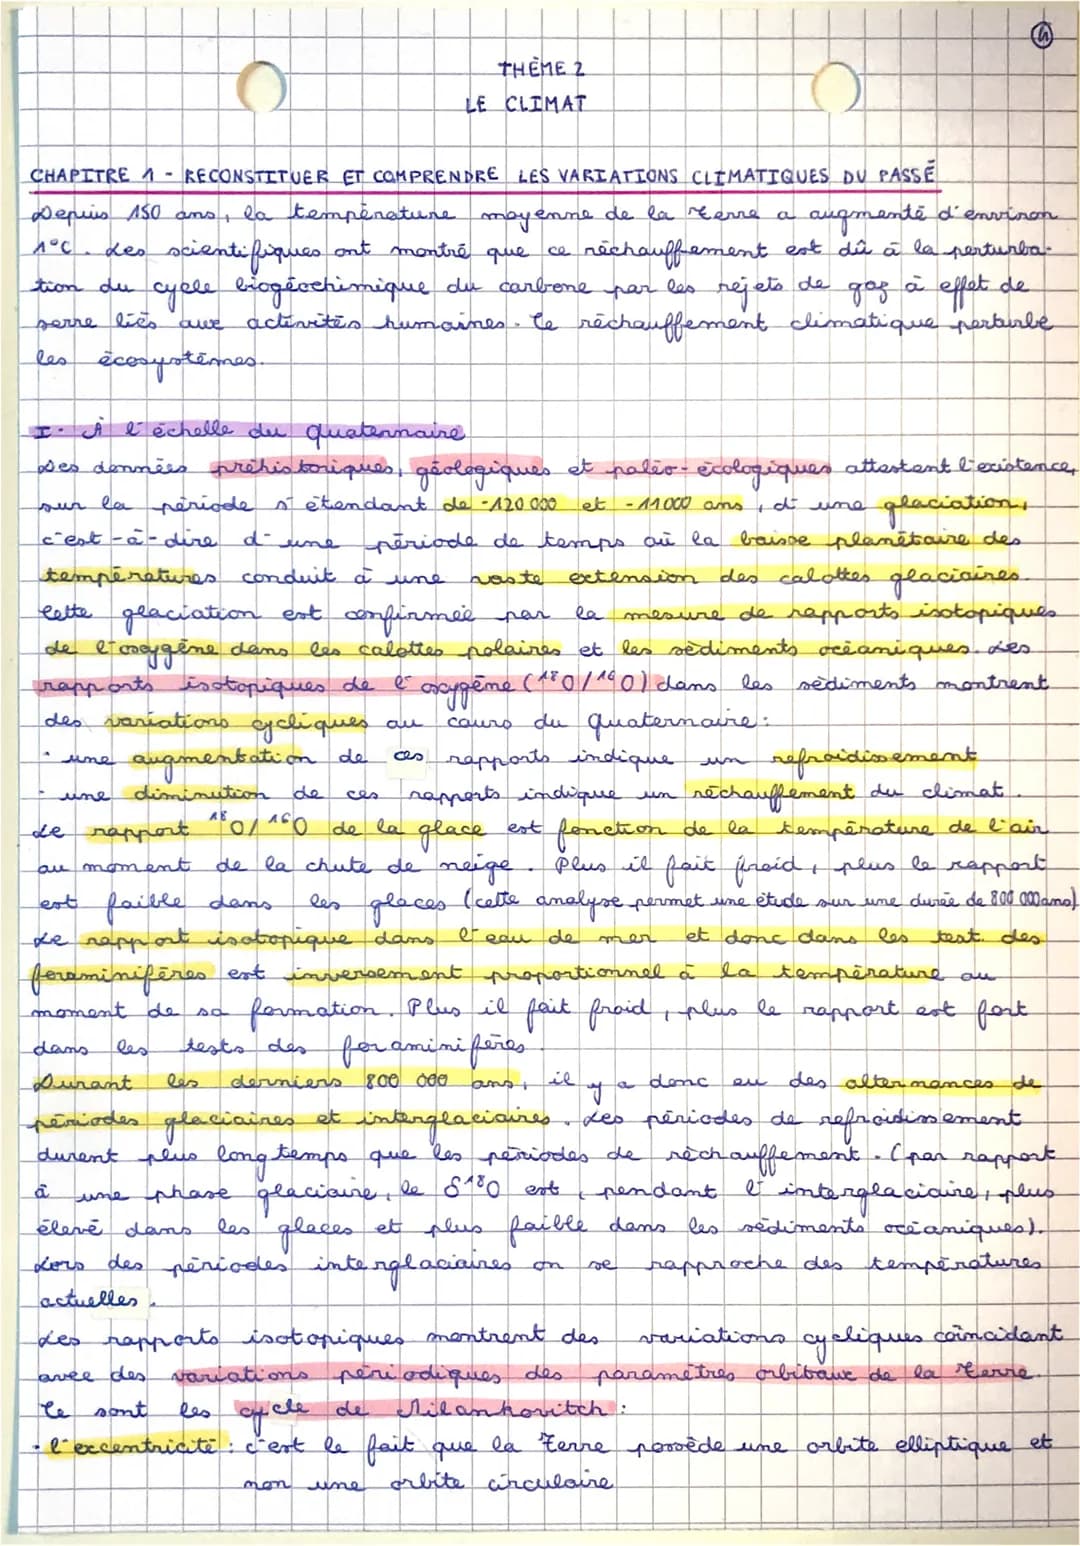 THÈME 2
LE CLIMAT
CHAPITRE 1 - RECONSTITUER ET COMPRENDRE LES VARIATIONS CLIMATIQUES DU PASSÉ
Depuis 150 ans, la température moyenne de la terre a augmenté d'environ
1°C. Les scientifiques ont montré que ce réchauffement est dû à la perturba-
tion du cycle biogéochimique du carbone par les rejets de gaz à effet de
serre liés aux activités humaines. Ce réchauffement climatique perturbe
les écosystèmes.
I. À l'échelle du quaternaire
Des données préhistoriques, géologiques et paléo-écologiques attestent l'existence,
sur la période s'étendant de -120 000 et -11000 ans, d'une glaciation,
c'est-à-dire d'une période de temps où la baisse planétaire des
températures conduit à une vaste extension des calottes glaciaires.
Cette glaciation est confirmée par la mesure de rapports isotopiques
de l'oxygène dans les calottes polaires et les sédiments océaniques. Les
rapports isotopiques de l'oxygène (¹⁸O/¹⁶O) dans les sédiments montrent
des variations cycliques au cours du quaternaire :
· une augmentation de ces rapports indique un refroidissement
· une diminution de ces rapports indique un réchauffement du climat.
Le rapport ¹⁸O/¹⁶O de la glace est fonction de la température de l'air
au moment de la chute de neige. Plus il fait froid, plus le rapport
est faible dans les glaces (cette analyse permet une étude sur une durée de 800 000 ans)
Le rapport isotopique dans l'eau de mer et donc dans les test des
foraminifères est inversement proportionnel à la température au
moment de sa formation. Plus il fait froid, plus le rapport est fort
dans les tests des foraminifères.
Durant les derniers 800 000 ans, il y a donc eu des alternances de
périodes glaciaires et interglaciaires. Les périodes de refroidissement
durent plus longtemps que les périodes de réchauffement. (par rapport
à une phase glaciaire, le δ¹⁸O est, pendant l'interglaciaire, plus
élevé dans les glaces et plus faible dans les sédiments océaniques).
Lors des périodes interglaciaires on se rapproche des températures
actuelles.
Les rapports isotopiques montrent des variations cycliques coïncidant
avec des variations périodiques des paramètres orbitaux de la terre.
Ce sont les cycle de Milankovitch :
· l'excentricité : c'est le fait que la Terre possède une orbite elliptique et
non une orbite circulaire